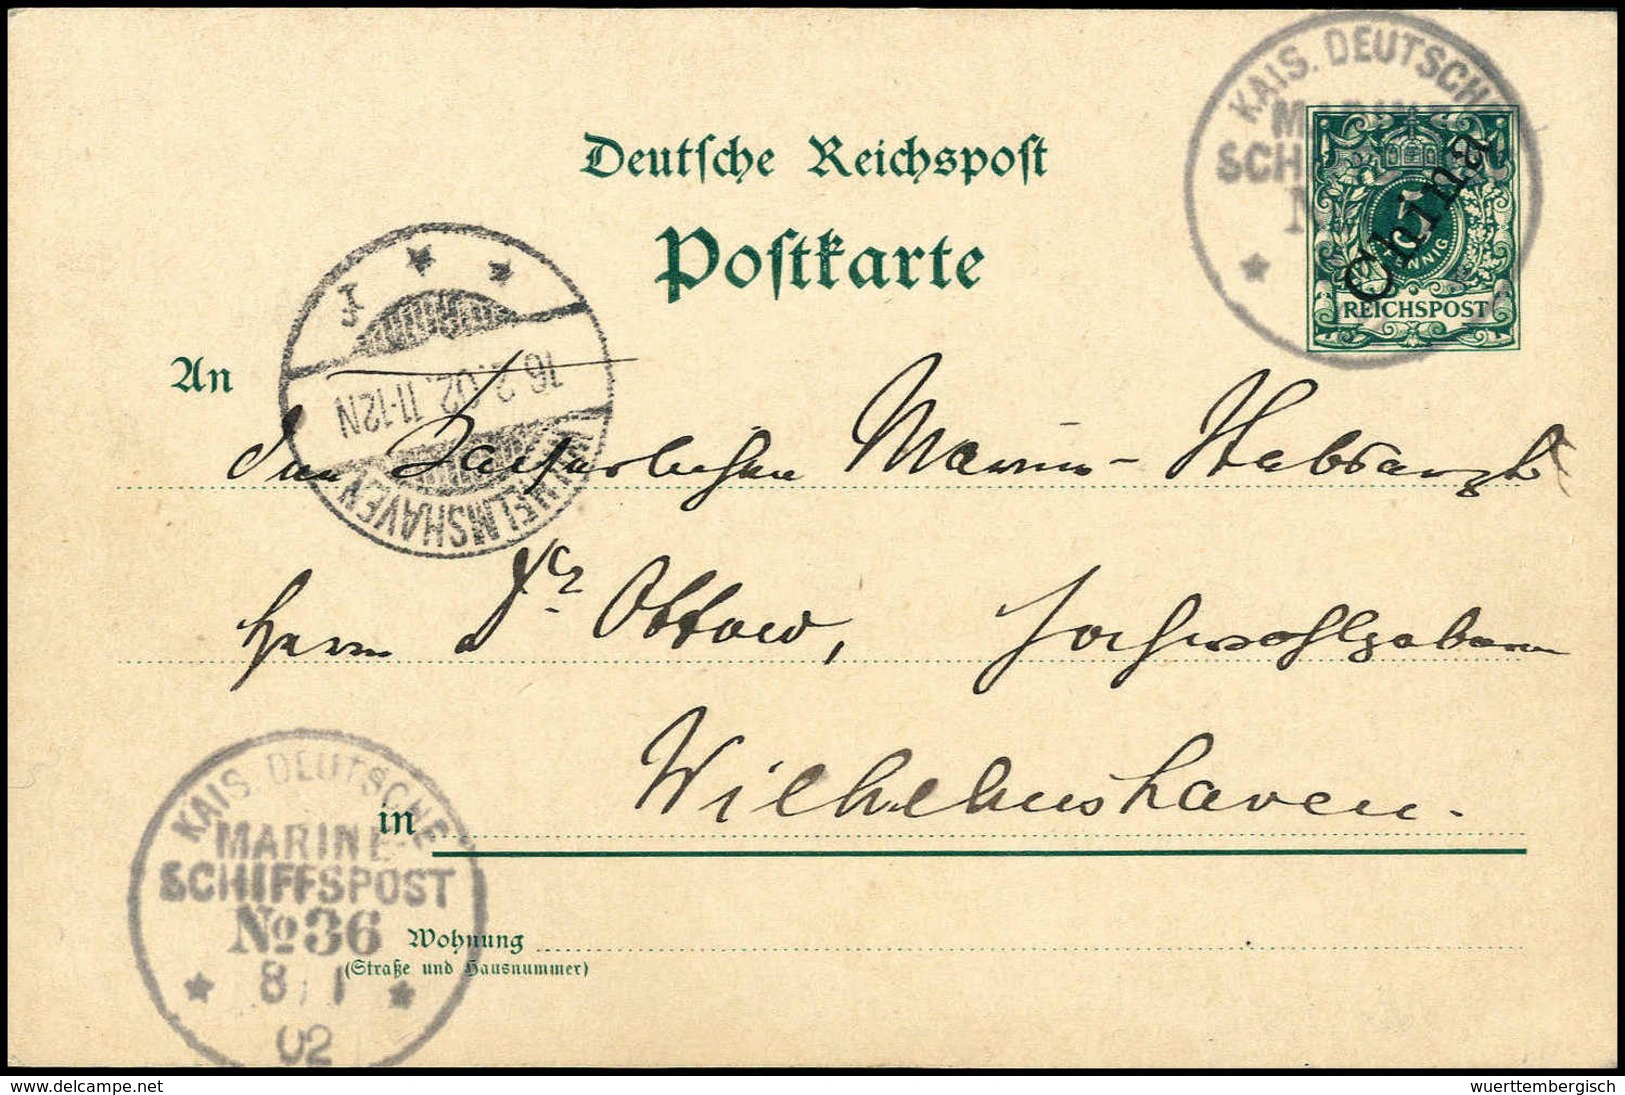 KAIS. DEUTSCHE
MARINE
SCH
N
China
5
PFENNIG
REICHSPOST
Deutsche Reichspost
Postkarte
An
* * *
16.2.02.11-12N
WILHELMSHAVEN
Den Kaiserlichen Marine-Stabsarzt
Herrn Dr Ottow, Hochwohlgeboren
in Wilhelmshaven.
KAIS. DEUTSCHE
MARINE-
SCHIFFSPOST
No 36
* 8/1 *
02
Wohnung
(Straße und Hausnummer)
www.delcampe.net
wuerttembergisch